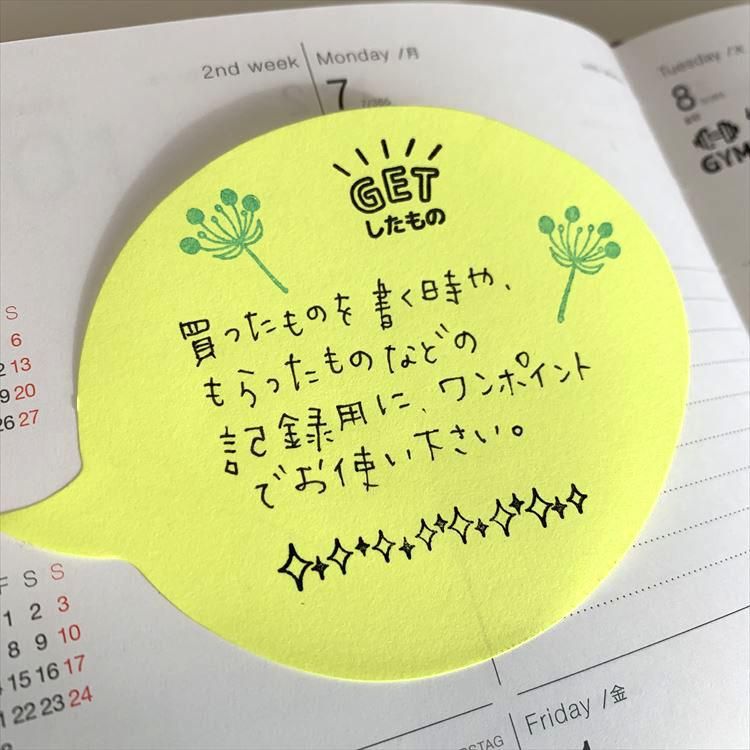 2nd week
Monday /月
7
7/365
Tuesday /火
8
GYM
GET
したもの
買ったものを書く時や、
もらったものなどの
記録用に、ワンポイント
でお使い下さい。
S
6
13
9 20
26 27
F S S
1 2 3
8 9 10
15 16 17
22 23 24
Friday /金